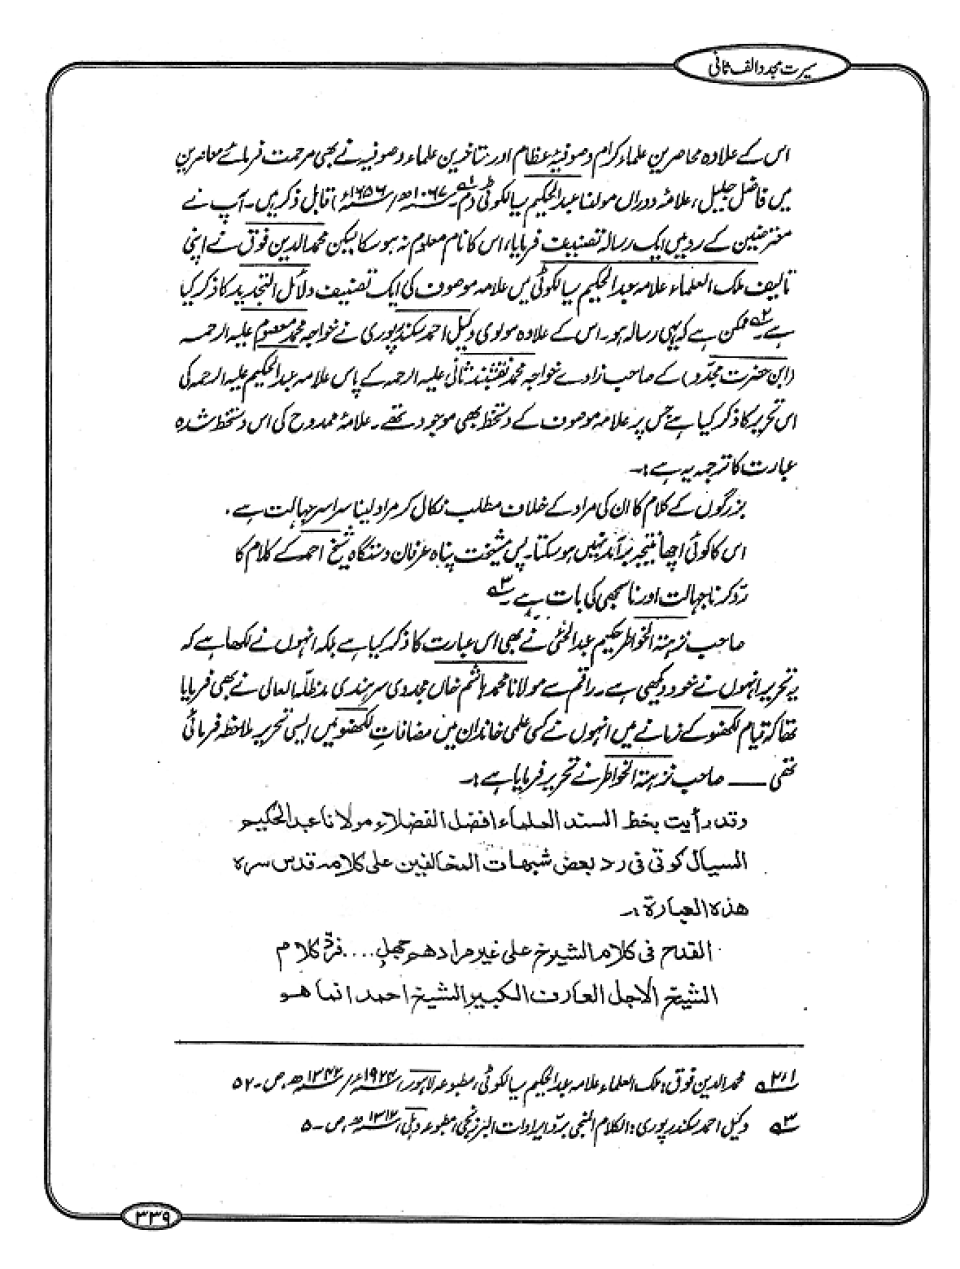 سیرت مجدد الف ثانی
اس کے علاوہ معاصرین علماء کرام وصوفیۂ عظام اور متاخرین علماء وصوفیہ نے بھی مرحمت فرمائے معاصرین
میں فاضل جلیل، علامۂ دوراں مولٰنا عبدالحکیم سیالکوٹی (م۔ ۱۰۶۷ھ/۱۶۵۶ء) قابل ذکر ہیں۔ آپ نے
معترضین کے رد میں ایک رسالہ تصنیف فرمایا، اس کا نام معلوم نہ ہو سکا لیکن محمدالدین فوق نے اپنی
تالیف ملک العلماء علامہ عبدالحکیم سیالکوٹی میں علامہ موصوف کی ایک تصنیف دلائل التجدید کا ذکر کیا
ہے ۲؎ ممکن ہے کہ یہی رسالہ ہو۔ اس کے علاوہ مولوی وکیل احمد سکندرپوری نے خواجہ محمد معصوم علیہ الرحمہ
(ابن حضرت مجدّد) کے صاحب زادے خواجہ محمد نقشبند ثانی علیہ الرحمہ کے پاس علامہ عبدالحکیم علیہ الرحمہ کی
اس تحریر کا ذکر کیا ہے جس پر علامہ موصوف کے دستخط بھی موجود تھے۔ علامۂ ممدوح کی اس دستخط شدہ
عبارت کا ترجمہ یہ ہے :۔
بزرگوں کے کلام کا ان کی مراد کے خلاف مطلب نکال کر مراد لینا سراسر جہالت ہے۔
اس کا کوئی اچھا نتیجہ برآمد نہیں ہو سکتا۔ پس مشیخت پناہ عرفان دستگاہ شیخ احمد کے کلام کا
ردّ کرنا جہالت اور ناسمجھی کی بات ہے۔ ۳؎
صاحب نزہتہ الخواطر حکیم عبدالحئی نے بھی اس عبارت کا ذکر کیا ہے بلکہ انہوں نے لکھا ہے کہ
یہ تحریر انہوں نے خود دیکھی ہے۔ راقم سے مولانا محمد ہاشم خاں مجددی سرہندی مدظلہ العالی نے بھی فرمایا
تھا کہ قیام لکھنؤ کے زمانے میں انہوں نے کسی علمی خاندان میں مضافاتِ لکھنؤ میں ایسی تحریر ملاحظہ فرمائی
تھی ــــــ صاحب نزہتہ الخواطر نے تحریر فرمایا ہے :۔
وقد رأیت بخط السند العلماء افضل الفضلاء مولانا عبدالحکیم
السیال کوتی فی رد بعض شبہات المخالفین علی کلامہ قدس سرہ
ھذہ العبارۃ :۔
القدح فی کلام الشیوخ علی غیر مرادھم جھل .... فردّ کلام
الشیخ الاجل العارف الکبیر الشیخ احمد انما ھو
۲،۱؎ محمد الدین فوق : ملک العلماء علامہ عبدالحکیم سیالکوٹی، مطبوعہ لاہور، ۱۹۲۴ء/۱۳۴۲ھ، ص۔ ۵۲
۳؎ وکیل احمد سکندرپوری : الکلام المنجی بردّ ایرادات البرزنجی، مطبوعہ دہلی، ۱۳۱۲ھ، ص۔ ۵
۳۳۹